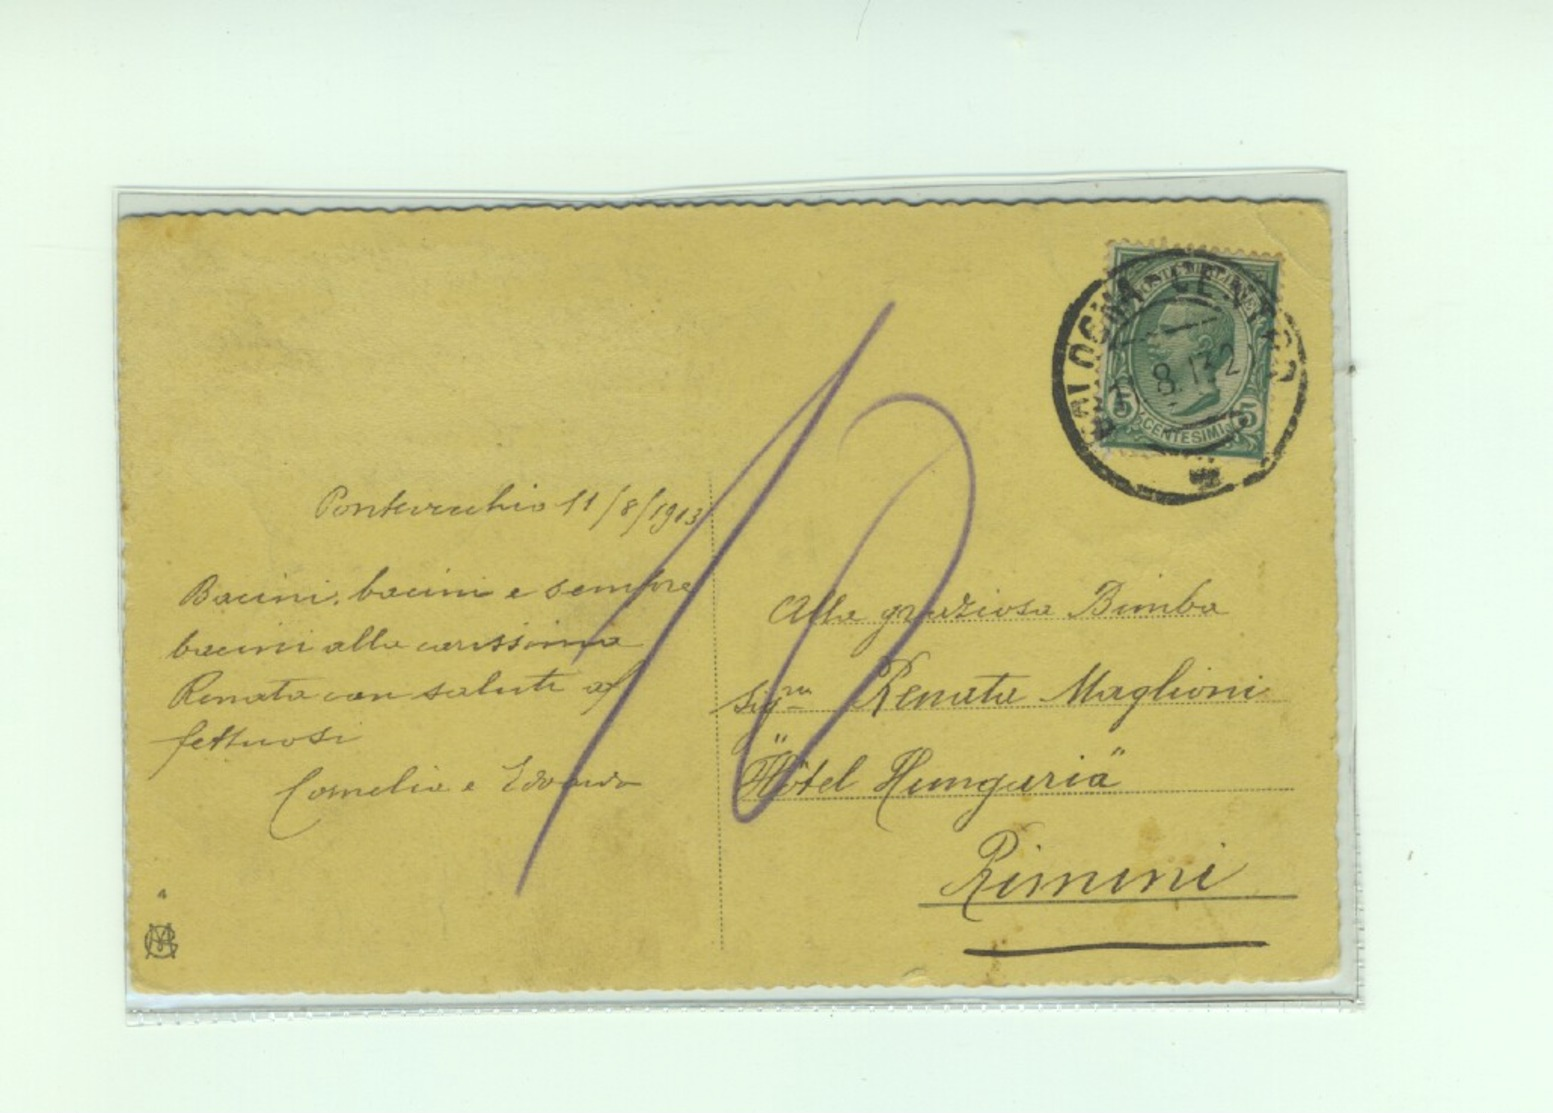 BOLOGNA CENTRO
8.13 2
5 5
CENTESIMI
Pontevecchio 11/8/1913
Bacini, bacini e sempre
bacini alla carissima
Renata con saluti af
fettuosi
Cornelia e Edoardo
10
Alla graziosa Bimba
Sigra Renata Maglioni
"Hôtel Hungaria"
Rimini
4